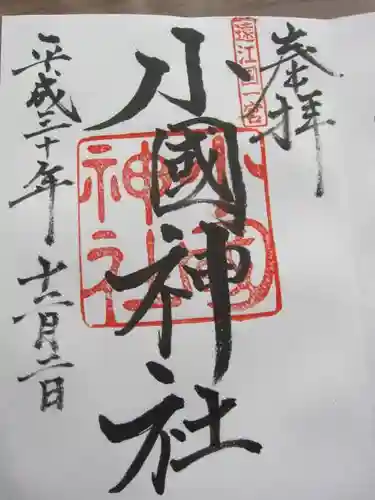 奉拝
遠江国一宮
小國神社
小國神社
平成三十年 十二月二日